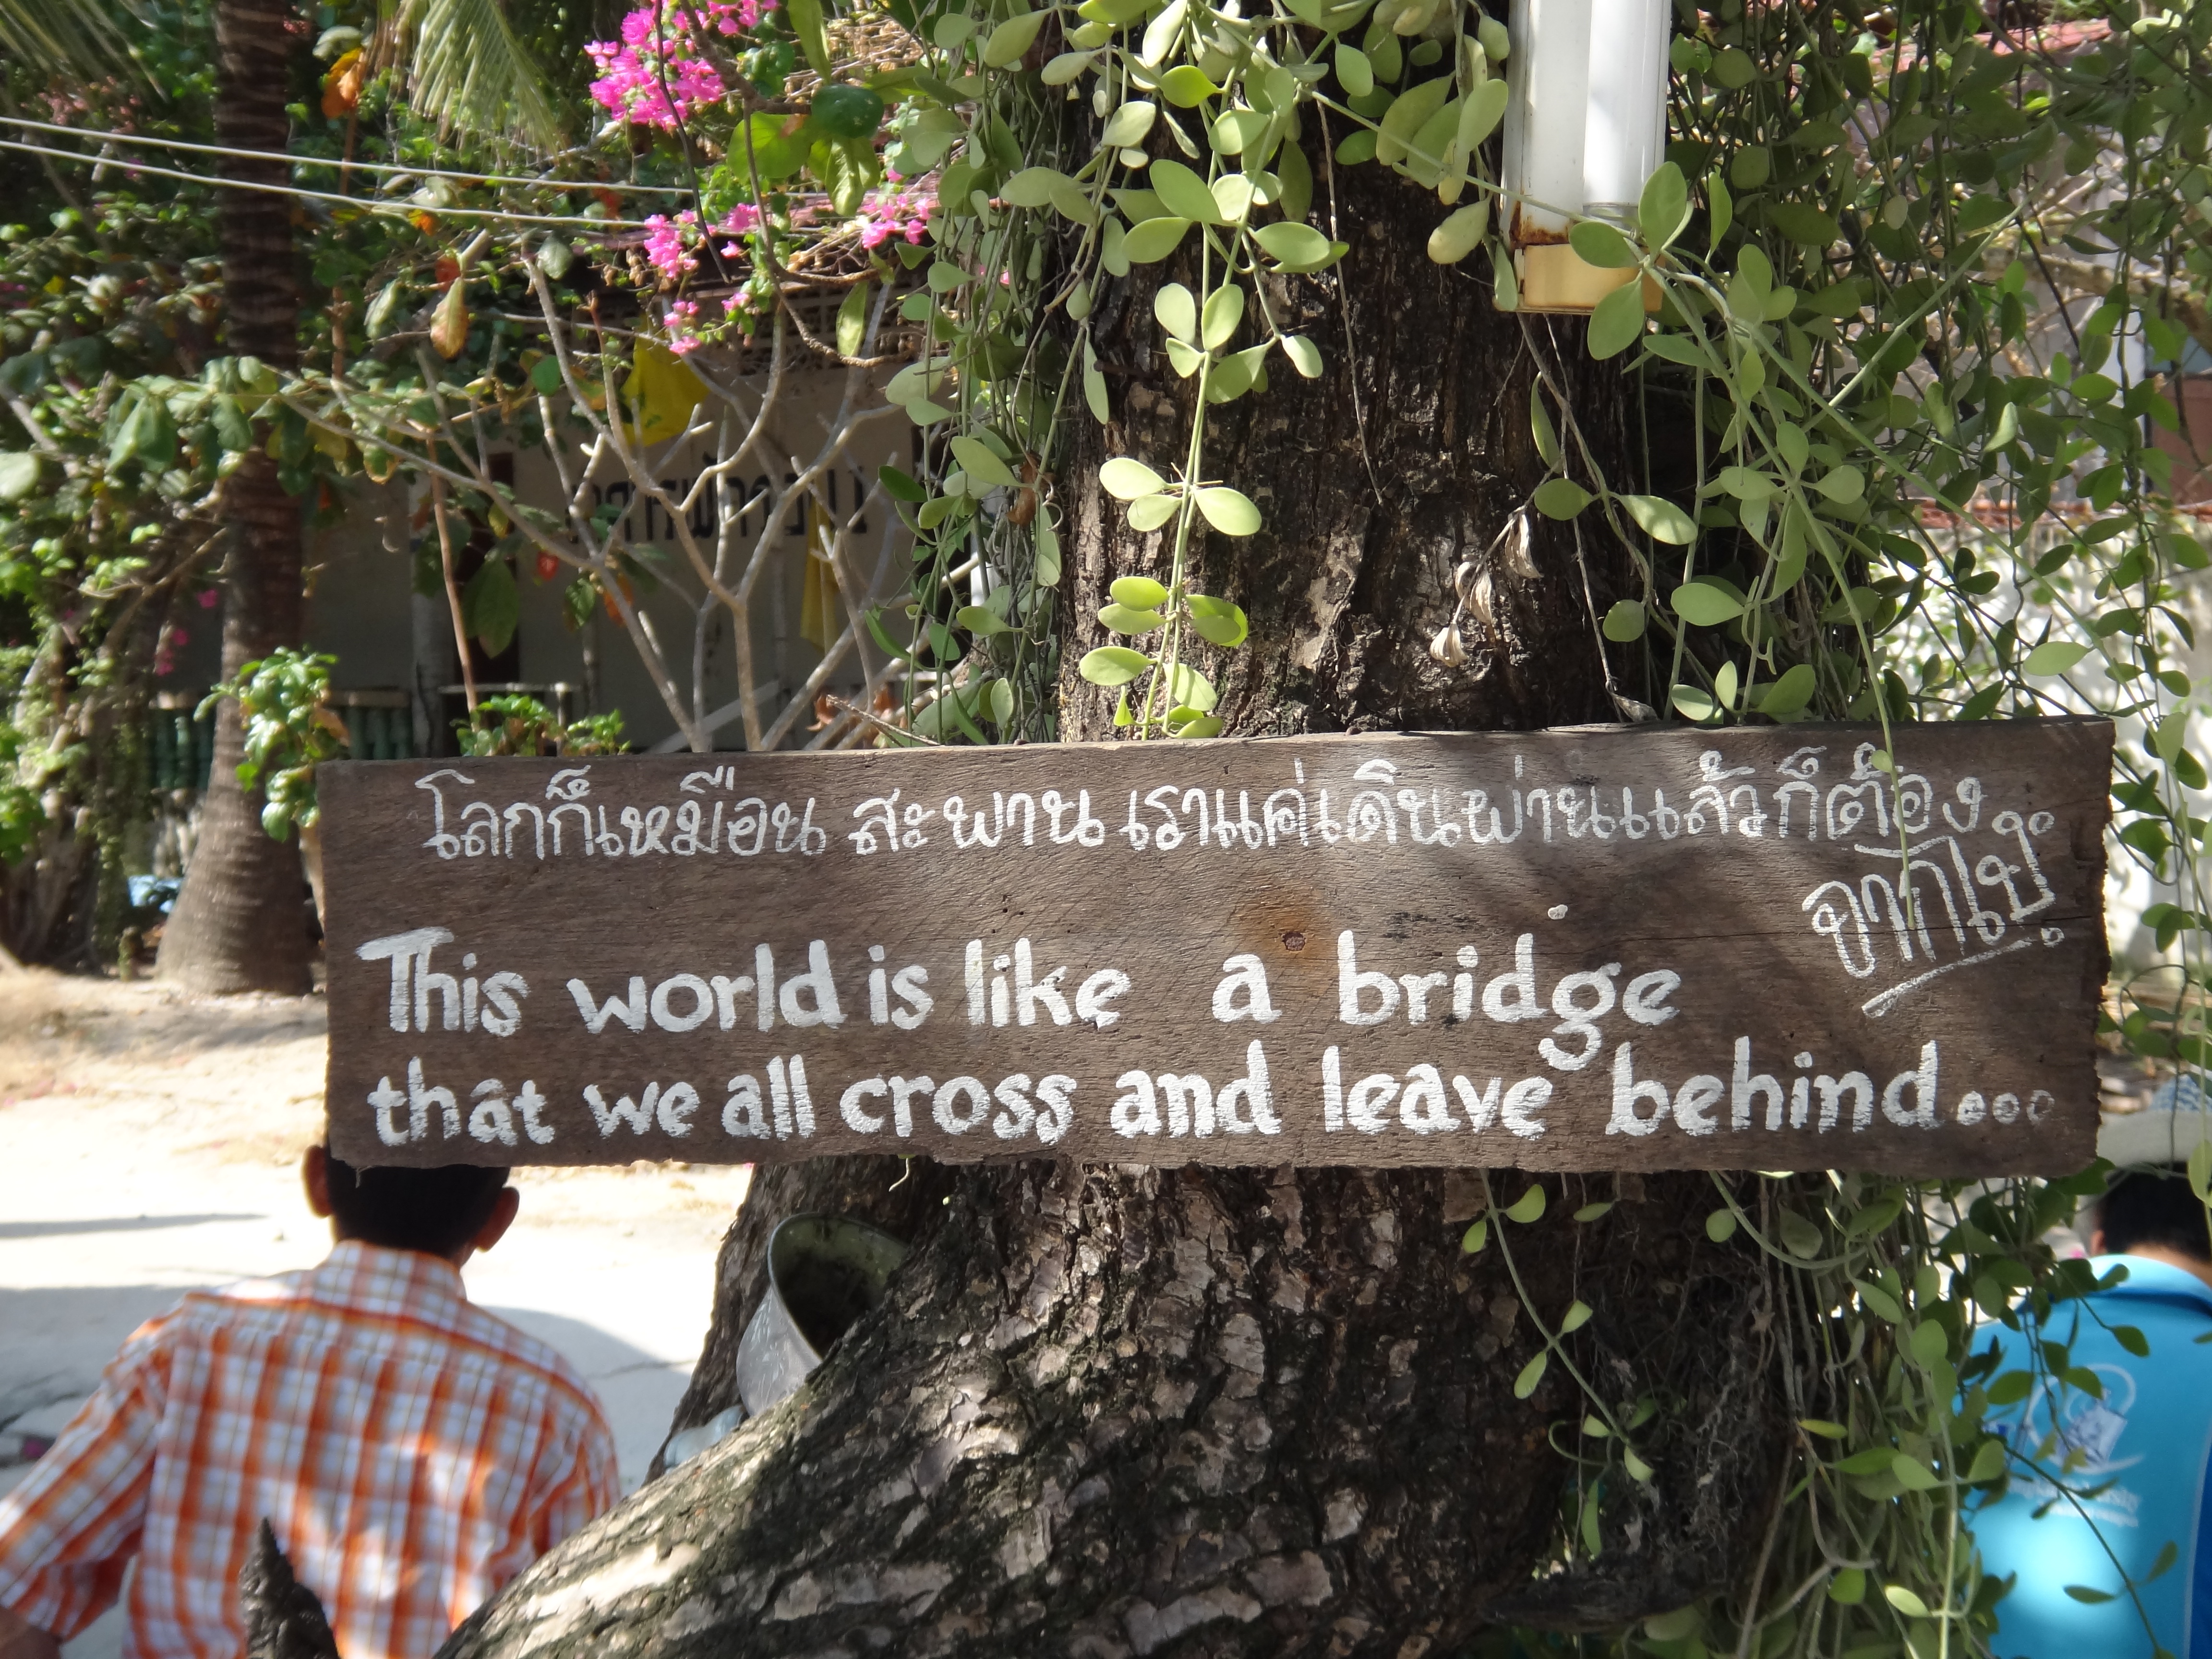 โลกก็เหมือน สะพาน เราแค่เดินผ่านแล้วก็ต้อง
จากไป
This world is like a bridge
that we all cross and leave behind...